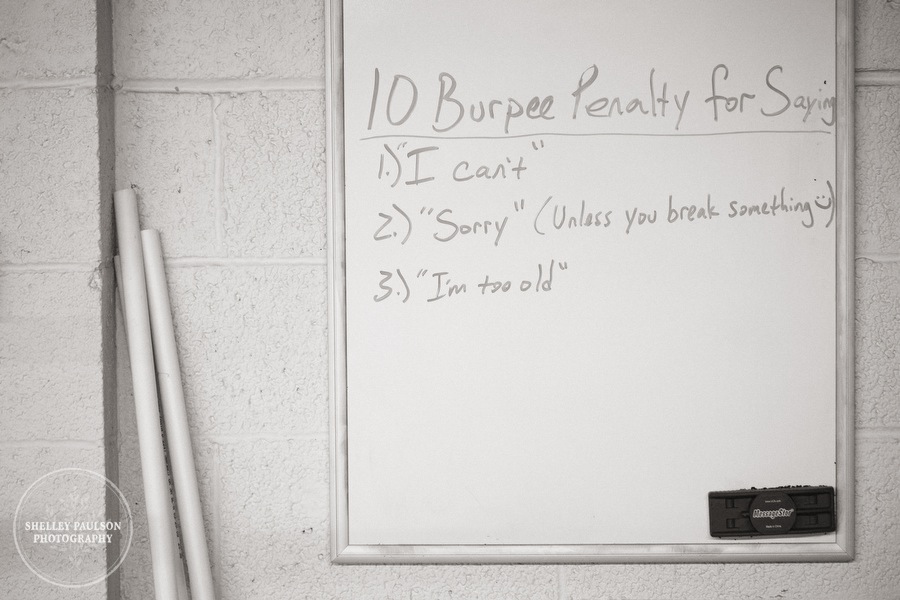 10 Burpee Penalty for Saying
1.) "I can't"
2.) "Sorry" (Unless you break something☺)
3.) "I'm too old"
MessageStor
Made in China
SHELLEY PAULSON
PHOTOGRAPHY